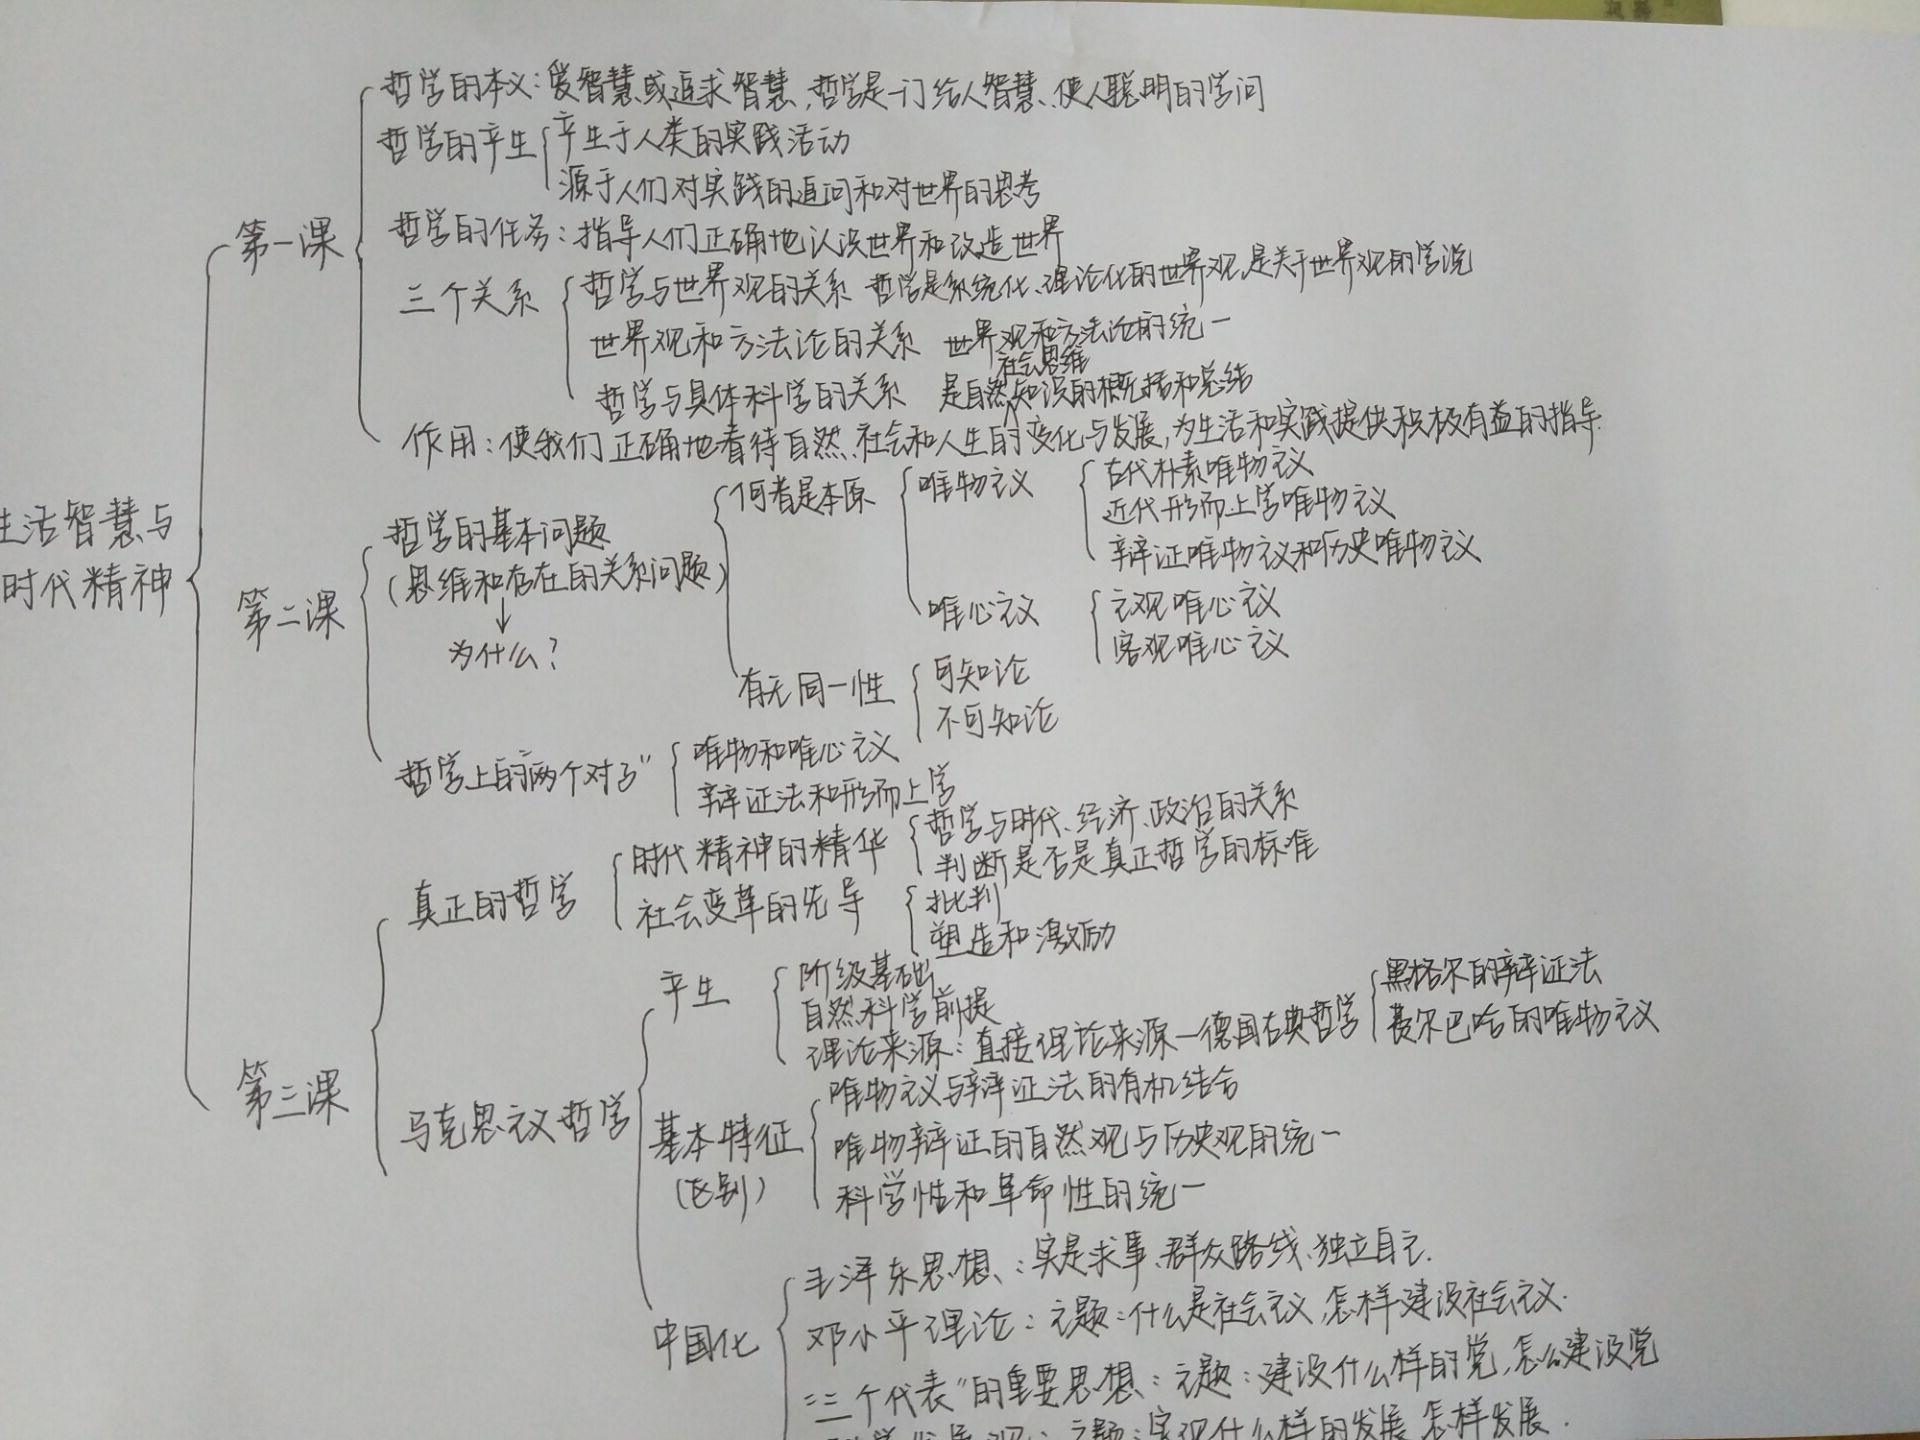 哲学的本义：爱智慧或追求智慧，哲学是一门给人智慧、使人聪明的学问
哲学的产生
产生于人类的实践活动
源于人们对实践的追问和对世界的思考
第一课
哲学的任务：指导人们正确地认识世界和改造世界
三个关系
哲学与世界观的关系 哲学是系统化、理论化的世界观，是关于世界观的学说
世界观和方法论的关系 世界观和方法论的统一
社会思维
哲学与具体科学的关系 是自然知识的概括和总结
作用：使我们正确地看待自然、社会和人生的变化与发展，为生活和实践提供积极有益的指导.
生活智慧与
时代精神
第二课
哲学的基本问题
(思维和存在的关系问题)
↓
为什么？
何者是本原
唯物主义
古代朴素唯物主义
近代形而上学唯物主义
辩证唯物主义和历史唯物主义
唯心主义
主观唯心主义
客观唯心主义
有无同一性
可知论
不可知论
哲学上的"两个对子"
唯物和唯心主义
辩证法和形而上学
第三课
真正的哲学
时代精神的精华
哲学与时代、经济、政治的关系
判断是否是真正哲学的标准
社会变革的先导
批判
塑造和激励
马克思主义哲学
产生
阶级基础
自然科学前提
理论来源：直接理论来源—德国古典哲学
黑格尔的辩证法
费尔巴哈的唯物主义
基本特征
(区别)
唯物主义与辩证法的有机结合
唯物辩证的自然观与历史观的统一
科学性和革命性的统一
中国化
毛泽东思想：实是求事、群众路线、独立自主.
邓小平理论：主题：什么是社会主义，怎样建设社会主义.
"三个代表"的重要思想：主题：建设什么样的党，怎么建设党
科学发展观：主题：实现什么样的发展 怎样发展.